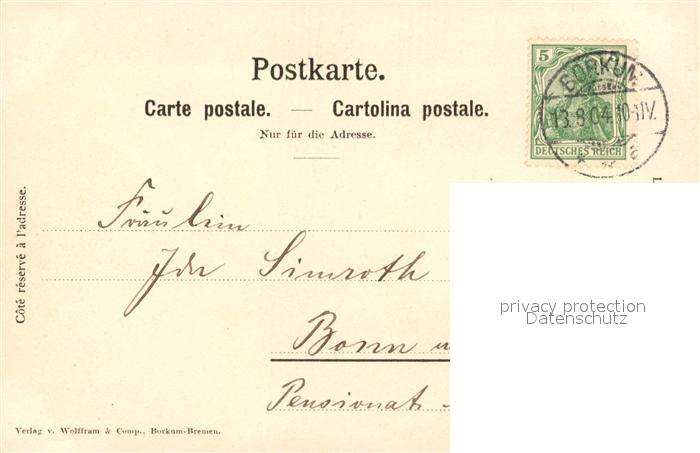 Postkarte.
Carte postale. — Cartolina postale.
Nur für die Adresse.
5
DEUTSCHES REICH
BORKUM
13.8.04.10-11V.
a
Côté réservé à l'adresse.
Fräulein
Ida Simroth
Bonn
Pensionat
privacy protection
Datenschutz
Verlag v. Wolffram & Comp., Borkum-Bremen.